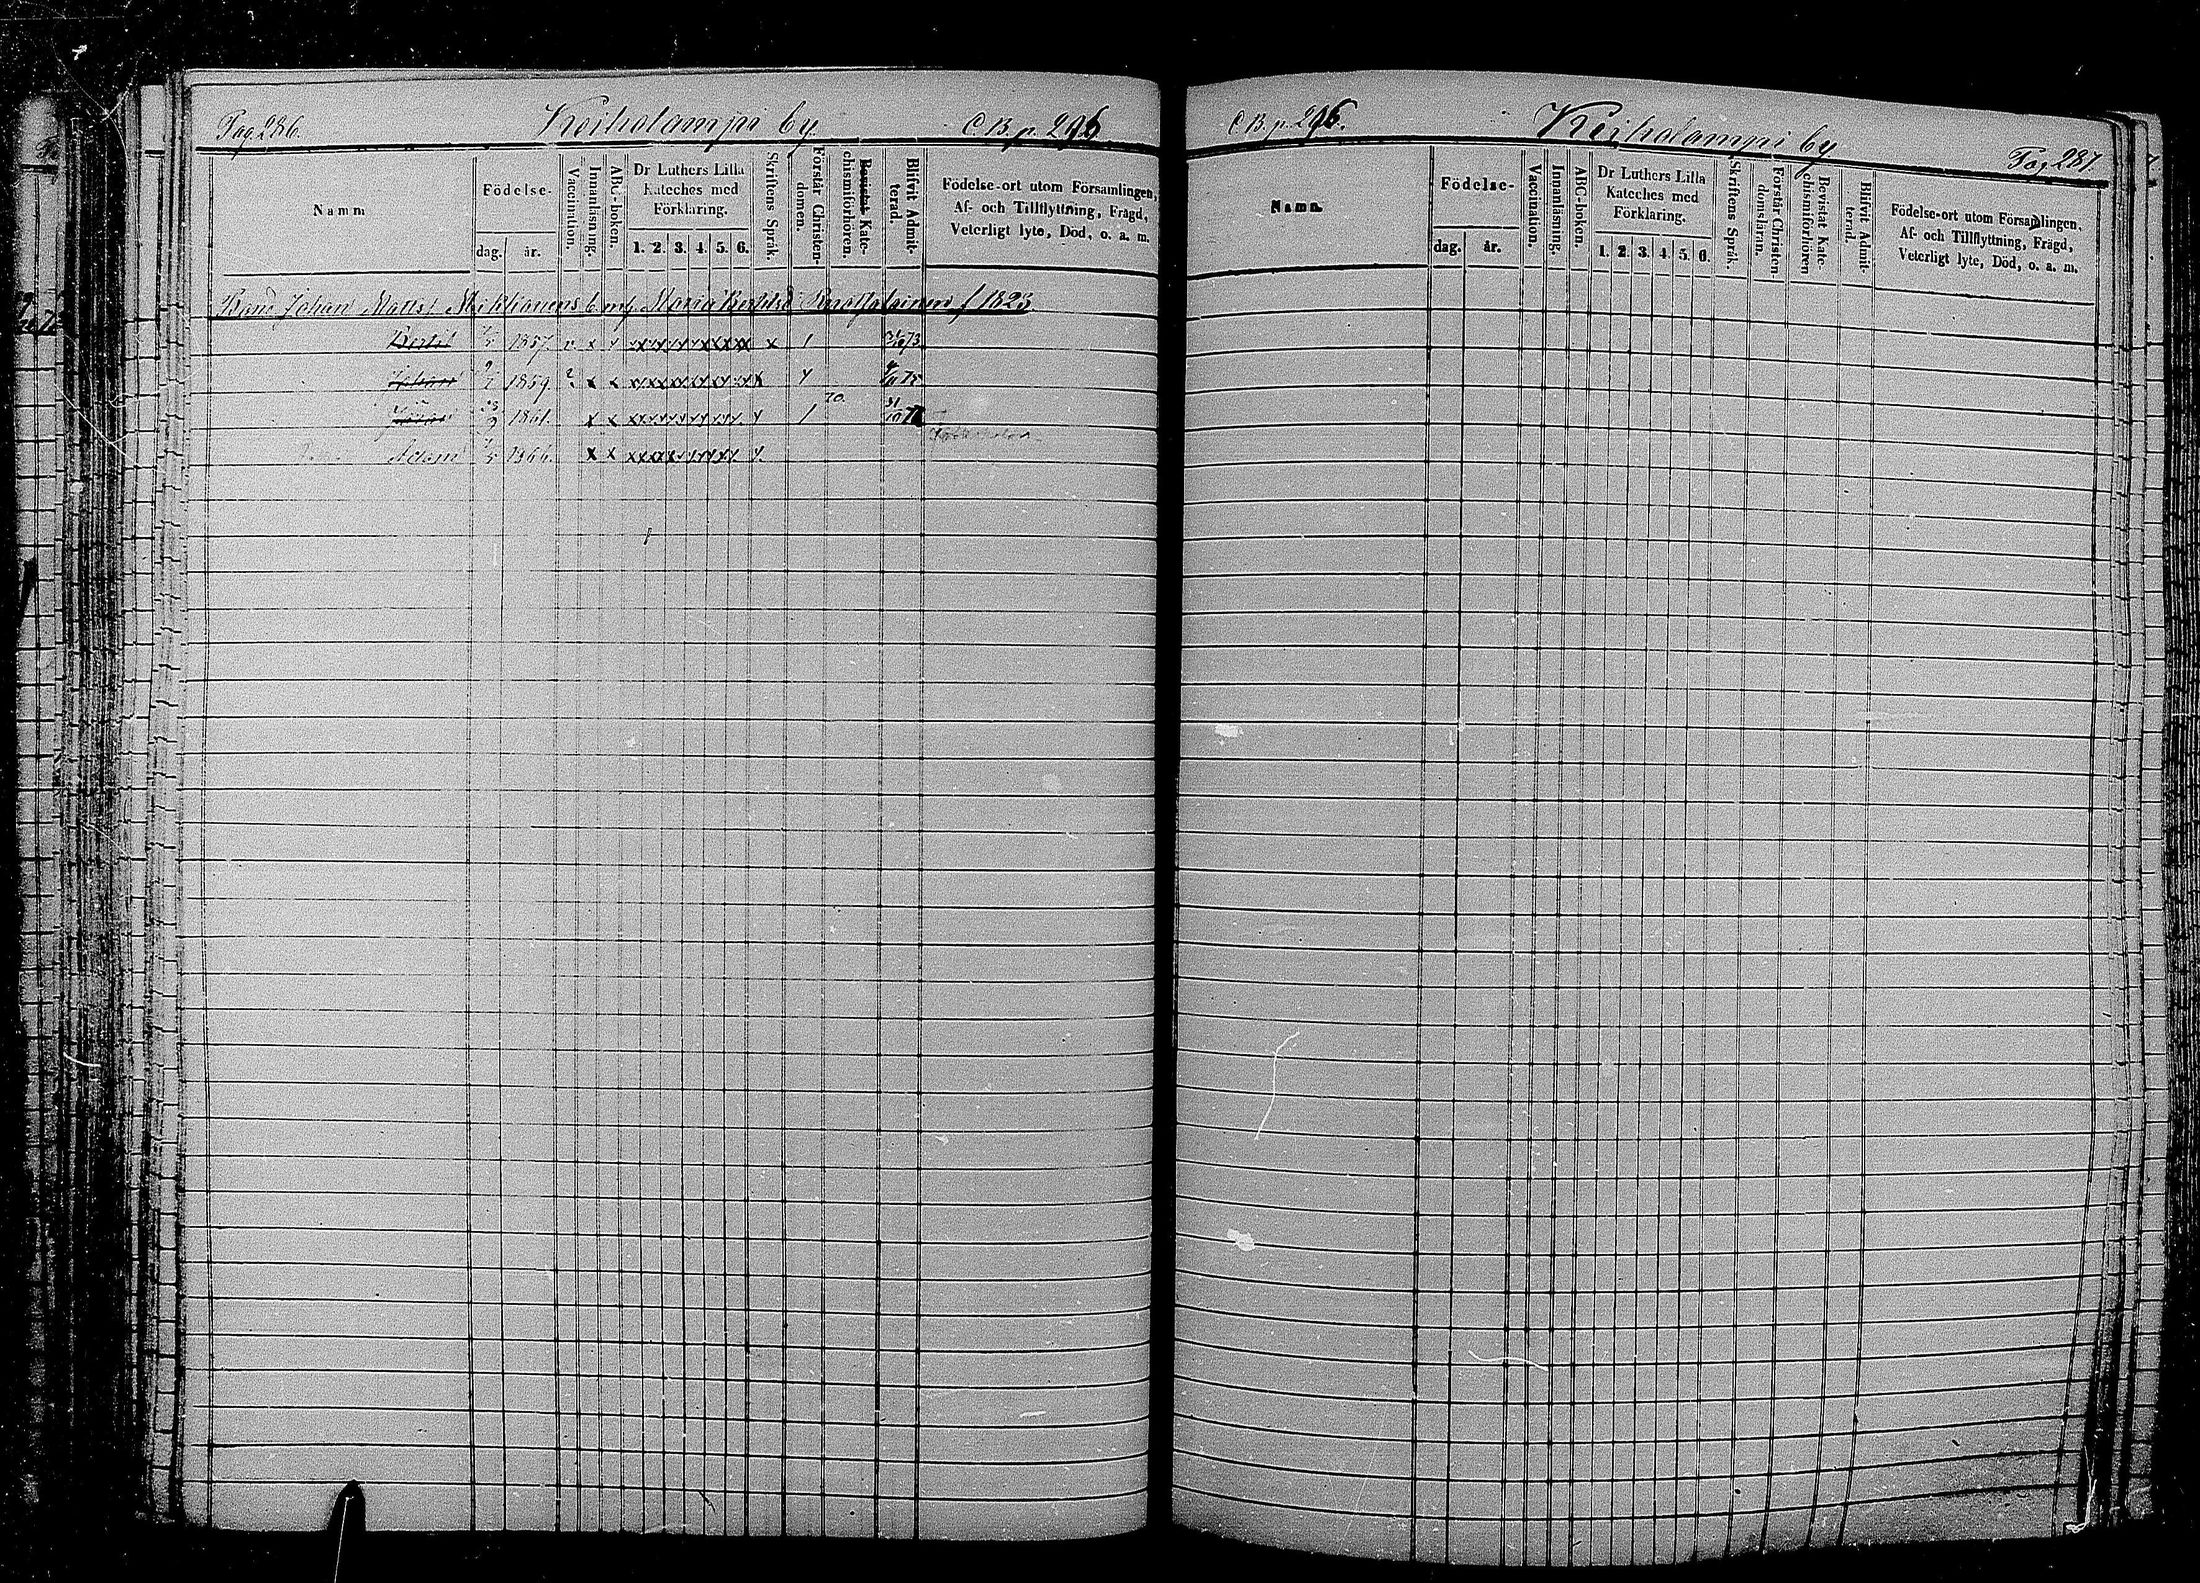 Pag 286. Keiholampi by C. B. p. 296
Namn
Födelse-
dag. år.
Vaccination.
Innanläsning.
ABC-boken.
Dr Luthers Lilla Kateches med Förklaring.
1. 2. 3. 4. 5. 6.
Skriftens Språk.
Förstår Christendomen.
Bevistat Katechismiförhören.
Blifvit Admitterad.
Födelse-ort utom Församlingen,
Af- och Tillflyttning, Frägd,
Veterligt lyte, Död, o. a. m.
Bond Johan Matts. b. m. Maria f 1823.
Bertil 1857. v x x x 1 73
Johan 9/2 1859 x x x 75
1861. x x 1 70. 31/10
Adam 1866. x x
C. B. p. 296. Keiholampi by Pag 287.
Namn.
Födelse-
dag. år.
Vaccination.
Innanläsning.
ABC-boken.
Dr Luthers Lilla Kateches med Förklaring.
1. 2. 3. 4. 5. 6.
Skriftens Språk.
Förstår Christendomsläran.
Bevistat Katechismiförhören
Blifvit Admitterad.
Födelse-ort utom Församlingen.
Af- och Tillflyttning, Frägd,
Veterligt lyte, Död, o. a. m.